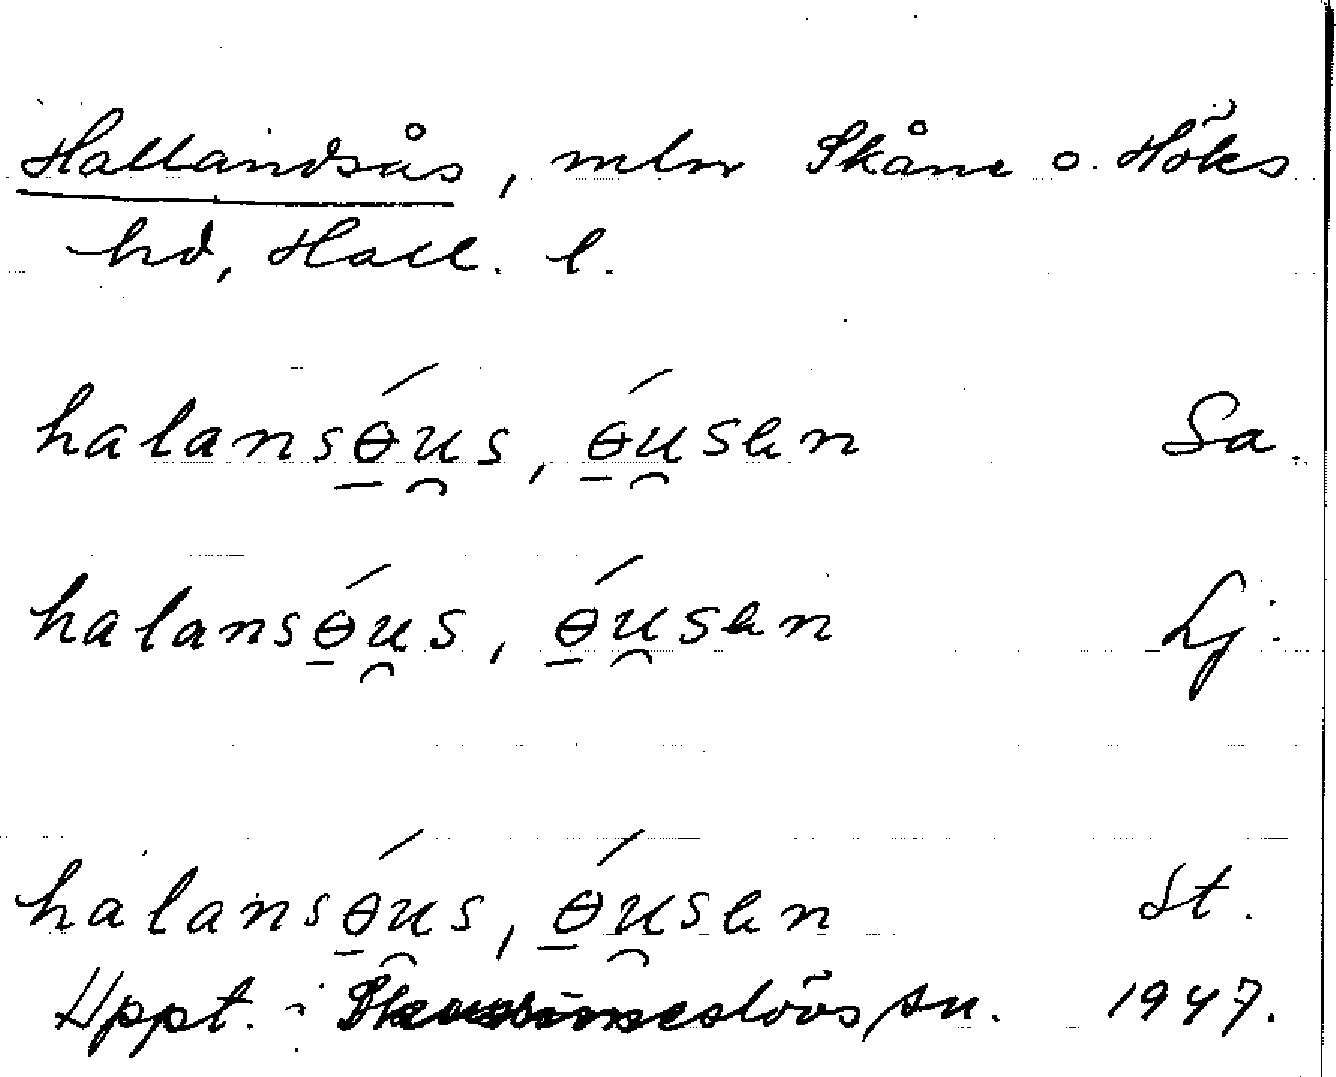 Hallandsås, mlm Skåne o. Höks
hd, Hall. l.
halansɵ́u̯s, ɵ́u̯sen Sa.
halansɵ́u̯s, ɵ́u̯sen Lj.
halansɵ́u̯s, ɵ́u̯sen St.
Uppt. i sn. 1947.